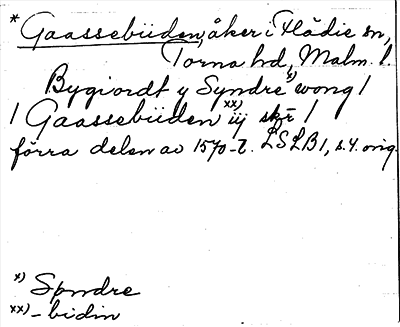 * Gaassebüden, åker i Flädie sn,
Torna hd, Malm. l.
Bygiordt y Syndre x) wong /
/ Gaassebüden xx) iij skr /
förra delen av 1570-t. LSLB1, s. 4. orig.
x) Spndre
xx) -bidin